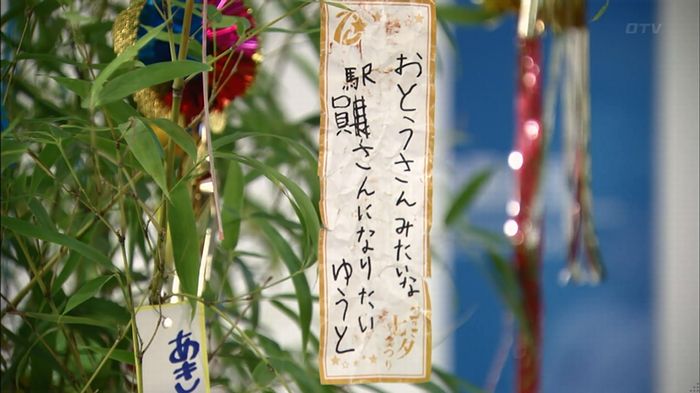 おとうさんみたいな
駅員さんになりたい
ゆうと
七夕
まつり
あきし
OTV